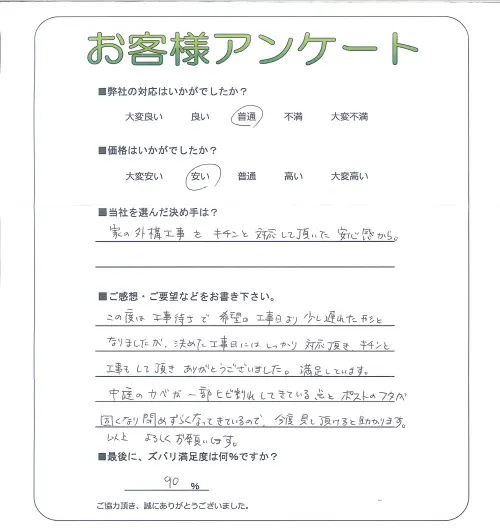 お客様アンケート
■弊社の対応はいかがでしたか？
大変良い 良い 普通 不満 大変不満
■価格はいかがでしたか？
大変安い 安い 普通 高い 大変高い
■当社を選んだ決め手は？
家の外構工事を キチンと 対応して頂いた 安心感から。
■ご感想・ご要望などをお書き下さい。
この度は工事待ちで 希望の工事日より少し遅れた
なりましたが、決めた工事日にはしっかり対応頂き、キチンと
工事もして頂き ありがとうございました。満足しています。
中庭のカベが一部ヒビ割れしてきている点と ポストのフタが
固くなり閉めずらくなってきているので、今度見て頂けると助かります。
以上 よろしくお願いします。
■最後に、ズバリ満足度は何%ですか？
90 %
ご協力頂き、誠にありがとうございました。